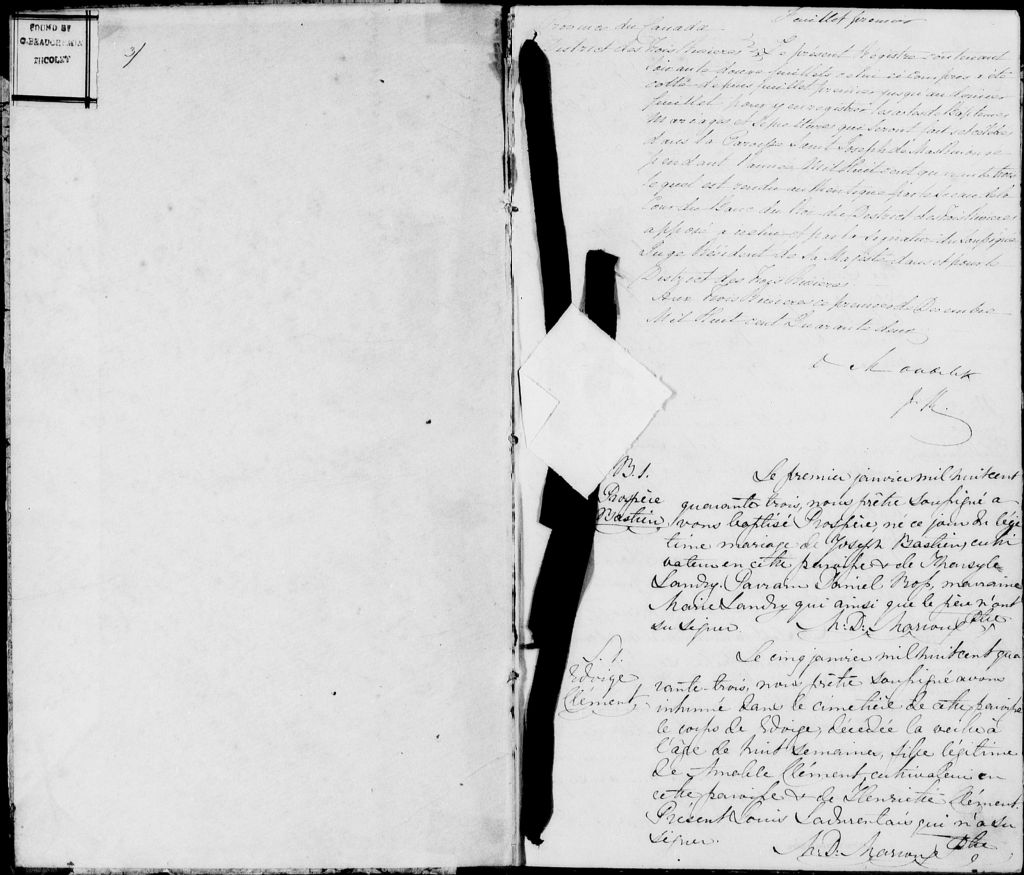 FOUND BY
NICOLET
3/
Feuillet premier
Province du Canada
District des Trois Rivieres Le présent Registre contenant
feuillets celui ci compris a été
cotté depuis feuillet premier jusqu'au dernier
feuillet pour y enregistrer les actes de Baptemes
Mariages et Sepultures qui seront faits et célébrés
dans la Paroisse Saint Joseph de Maskinongé
pendant l'année Mil Huit cent quarante trois
lequel est rendu authentique par le Sceau de la
Cour du Banc du Roi du District des Trois Rivieres
apposé à icelui et par la Signature du Soussigné
Juge Résident de Sa Majesté dans et pour le
District des Trois Rivieres.
Aux trois Rivieres ce premier de Decembre
Mil Huit cent Quarante deux
B. 1.
Prospère
Bastien
Le premier janvier mil huit cent
quarante trois, nous prêtre soussigné a-
vons baptisé Prospère, né ce jour du légi
time mariage de Joseph Bastien, culti
vateur en cette paroisse & de Marsyle
Landry. Parrain Daniel Ross, marraine
Marie Landry qui ainsi que le père n'ont
su signer. M. D. Marcoux Ptre
S. 1.
Edvige
Clément,
Le cinq janvier mil huit cent qua
rante-trois, nous prêtre soussigné avons
inhumé dans le cimetière de cette paroisse
le corps de Edvige, décédée la veille à
l'âge de huit semaines, fille légitime
de Amable Clément, cultivateur en
cette paroisse & de Henriette Clément.
Présent Louis qui n'a su
signer.
M. D. Marcoux Ptre